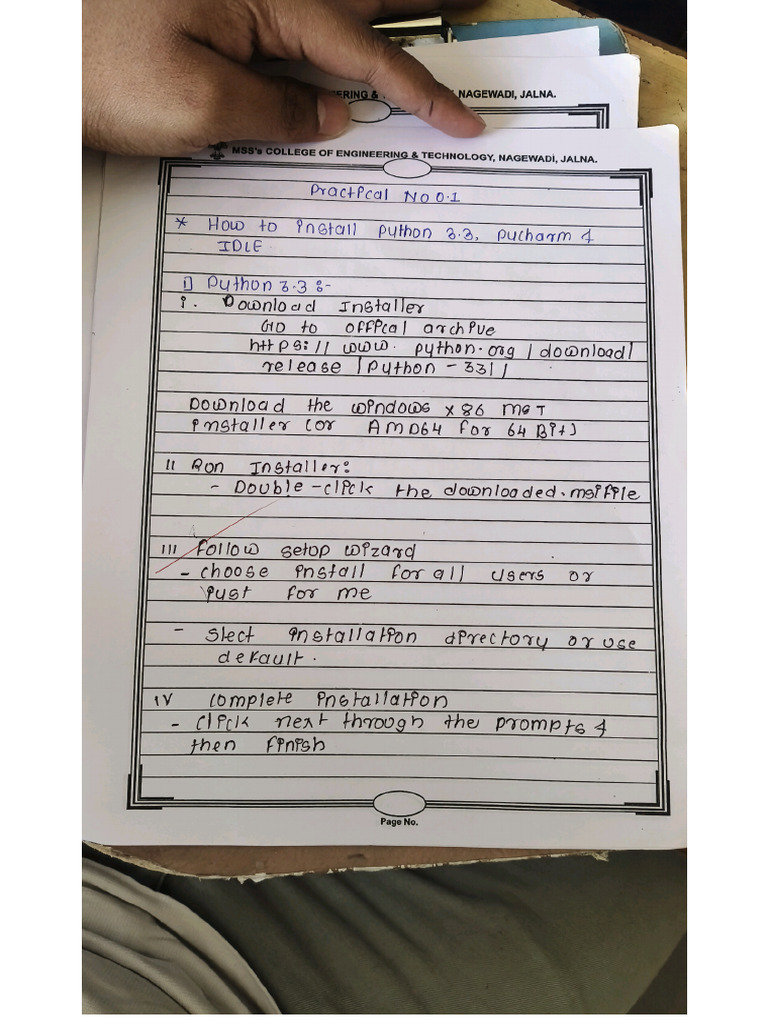 ERING & T NAGEWADI, JALNA.
MSS's COLLEGE OF ENGINEERING & TECHNOLOGY, NAGEWADI, JALNA.
Practical No 0.1
* How to install python 3.3, pucharm &
IDLE.
1) Python 3.3 :-
i. Download Installer
Go to offical archive
https://www.python.org/download/
release/python-33//
Download the windows x 86 MSI
installer (or AMD64 for 64 Bit)
II Run Installer:
- Double-click the downloaded.msi file
III Follow setup wizard
- choose install for all users or
just for me
- slect installation directory or use
default.
IV complete installation
- click next through the prompts &
then finish
Page No.